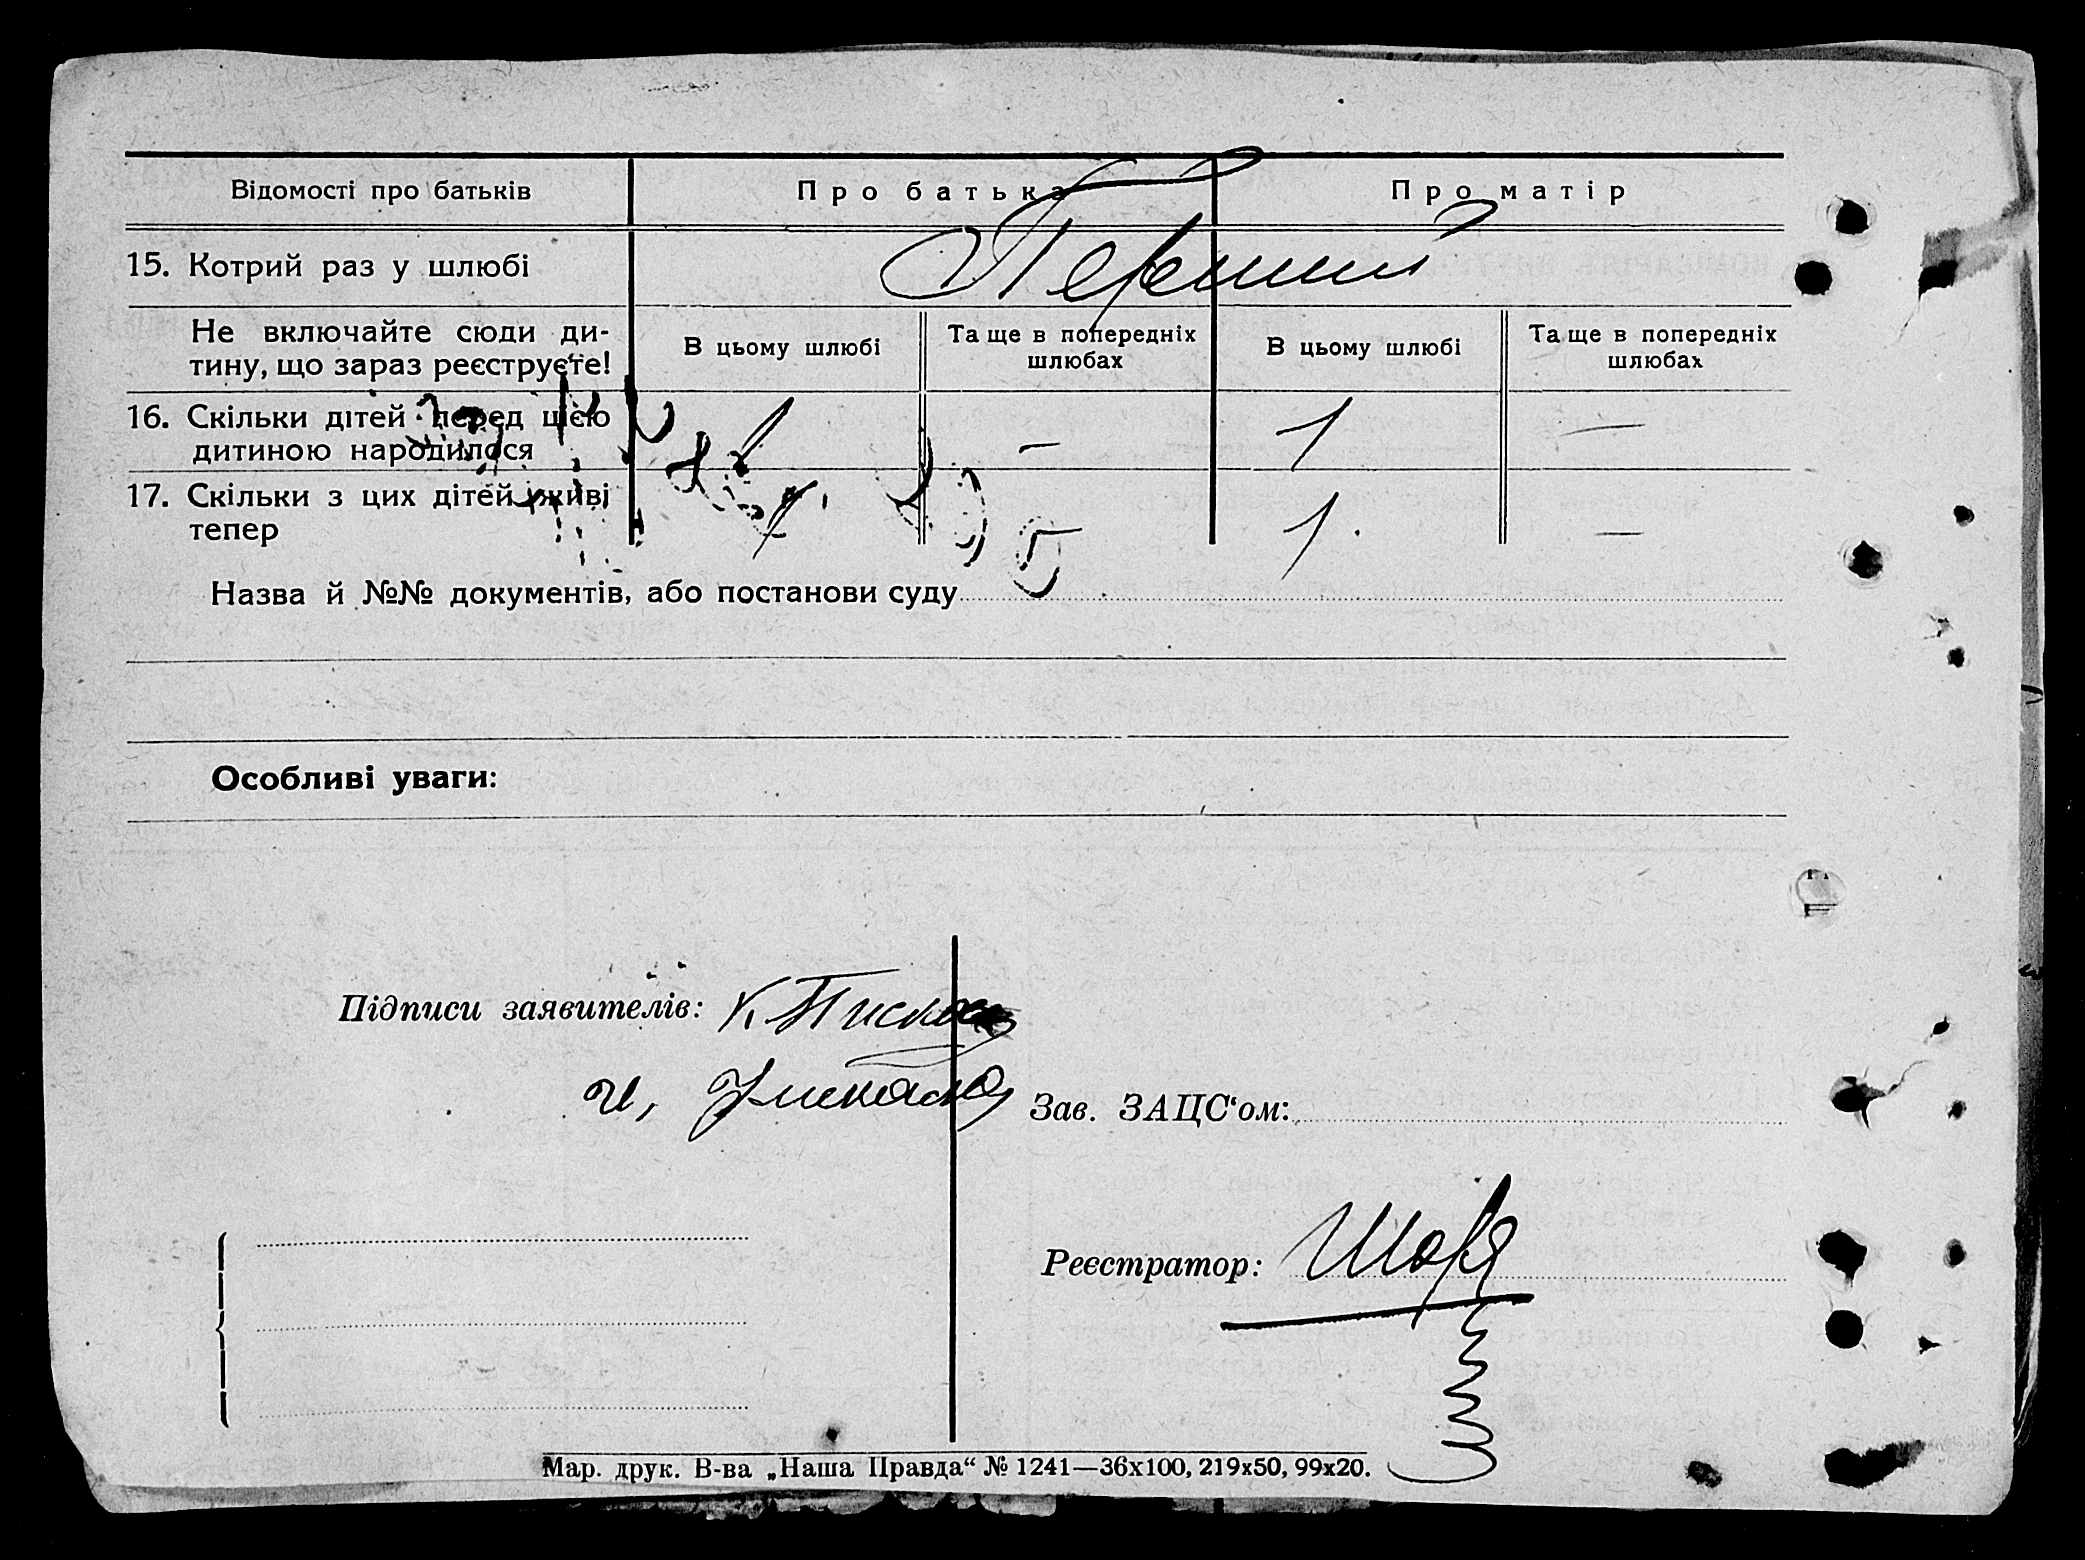 Відомості про батьків Про батька Про матір
15. Котрий раз у шлюбі Перший
Не включайте сюди ди-
тину, що зараз реєструєте!
В цьому шлюбі
Та ще в попередніх
шлюбах
В цьому шлюбі
Та ще в попередніх
шлюбах
16. Скільки дітей перед цією
дитиною народилося
1 — 1 —
17. Скільки з цих дітей живі
тепер
1. — 1. —
Назва й №№ документів, або постанови суду
Особливі уваги:
Підписи заявителів: К.
Зав. ЗАЦС‘ом:
Реєстратор:
Мар. друк. В-ва „Наша Правда“ № 1241—36х100, 219х50, 99х20.